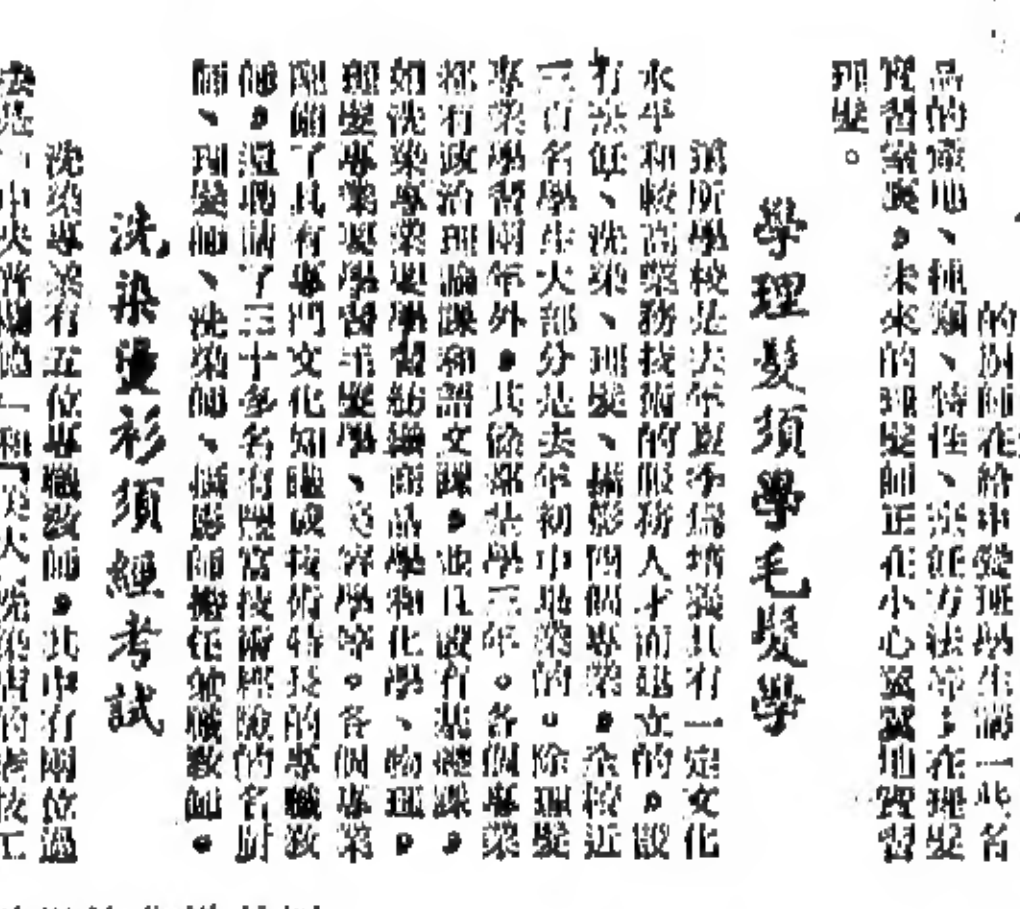 的厨師在給中餐班學生講一些名
品的產地、種類、特性、烹飪方法等；在理髮
實習室裏，未來的理髮師正在小心翼翼地實習
理髮。
學理髮須學毛髮學
這所學校是去年夏季爲培養具有一定文化
水平和較高業務技術的服務人才而建立的。設
有烹飪、洗染、理髮、攝影四個專業。全校近
二百名學生大部分是去年初中畢業的。除理髮
專業學習兩年外，其餘都是學三年。各個專業
都有政治理論課和語文課，也具設有基礎課，
如洗染專業要學習紡織商品學和化學、物理。
理髮專業要學習毛髮學、美容學等。各個專業
配備了具有專門文化知識或技術特長的專職教
師，還聘請了三十多名有豐富技術經驗的名廚
師、理髮師、洗染師、攝影師擔任兼職教師。
洗染燙衫須經考試
洗染專業有五位專職教師，其中有兩位過